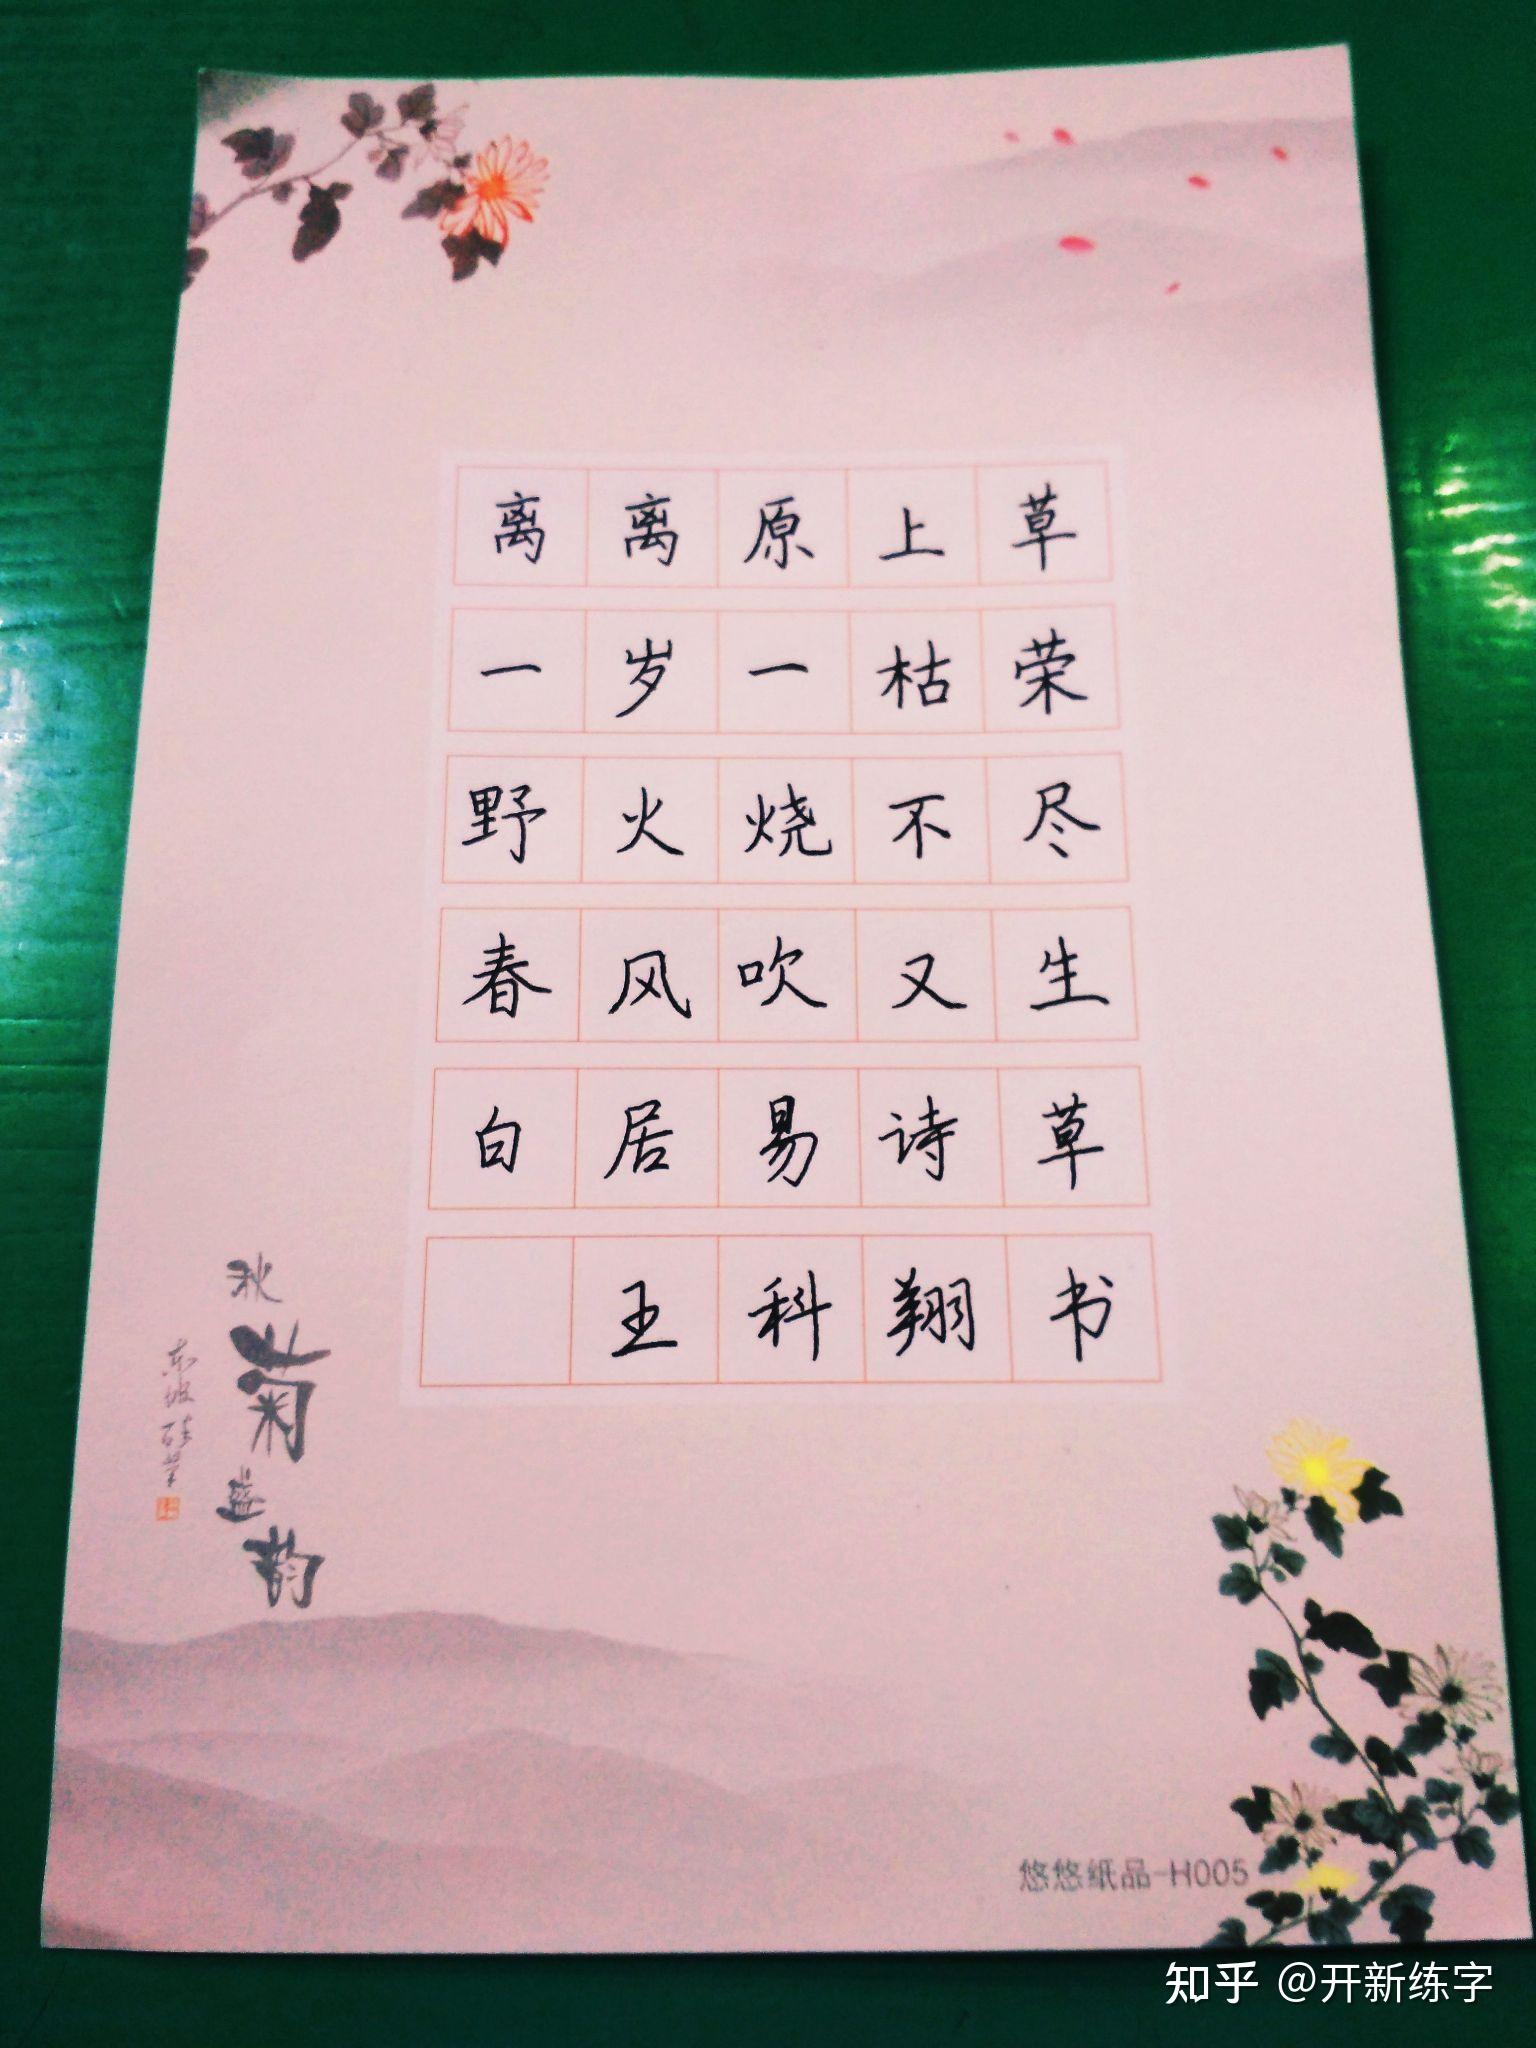 离离原上草
一岁一枯荣
野火烧不尽
春风吹又生
白居易诗草
王科翔书
秋菊盛韵
悠悠纸品-H005
知乎 @开新练字